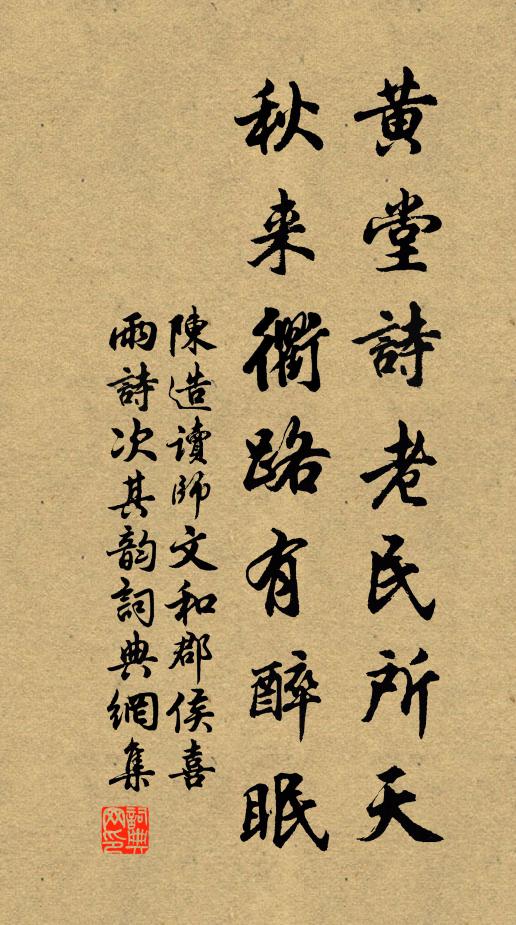 黃堂詩老民所天
秋来衢路有醉眠
陳造讀師文和郡侯喜
雨詩次其韵詞典網集
詞典
网印